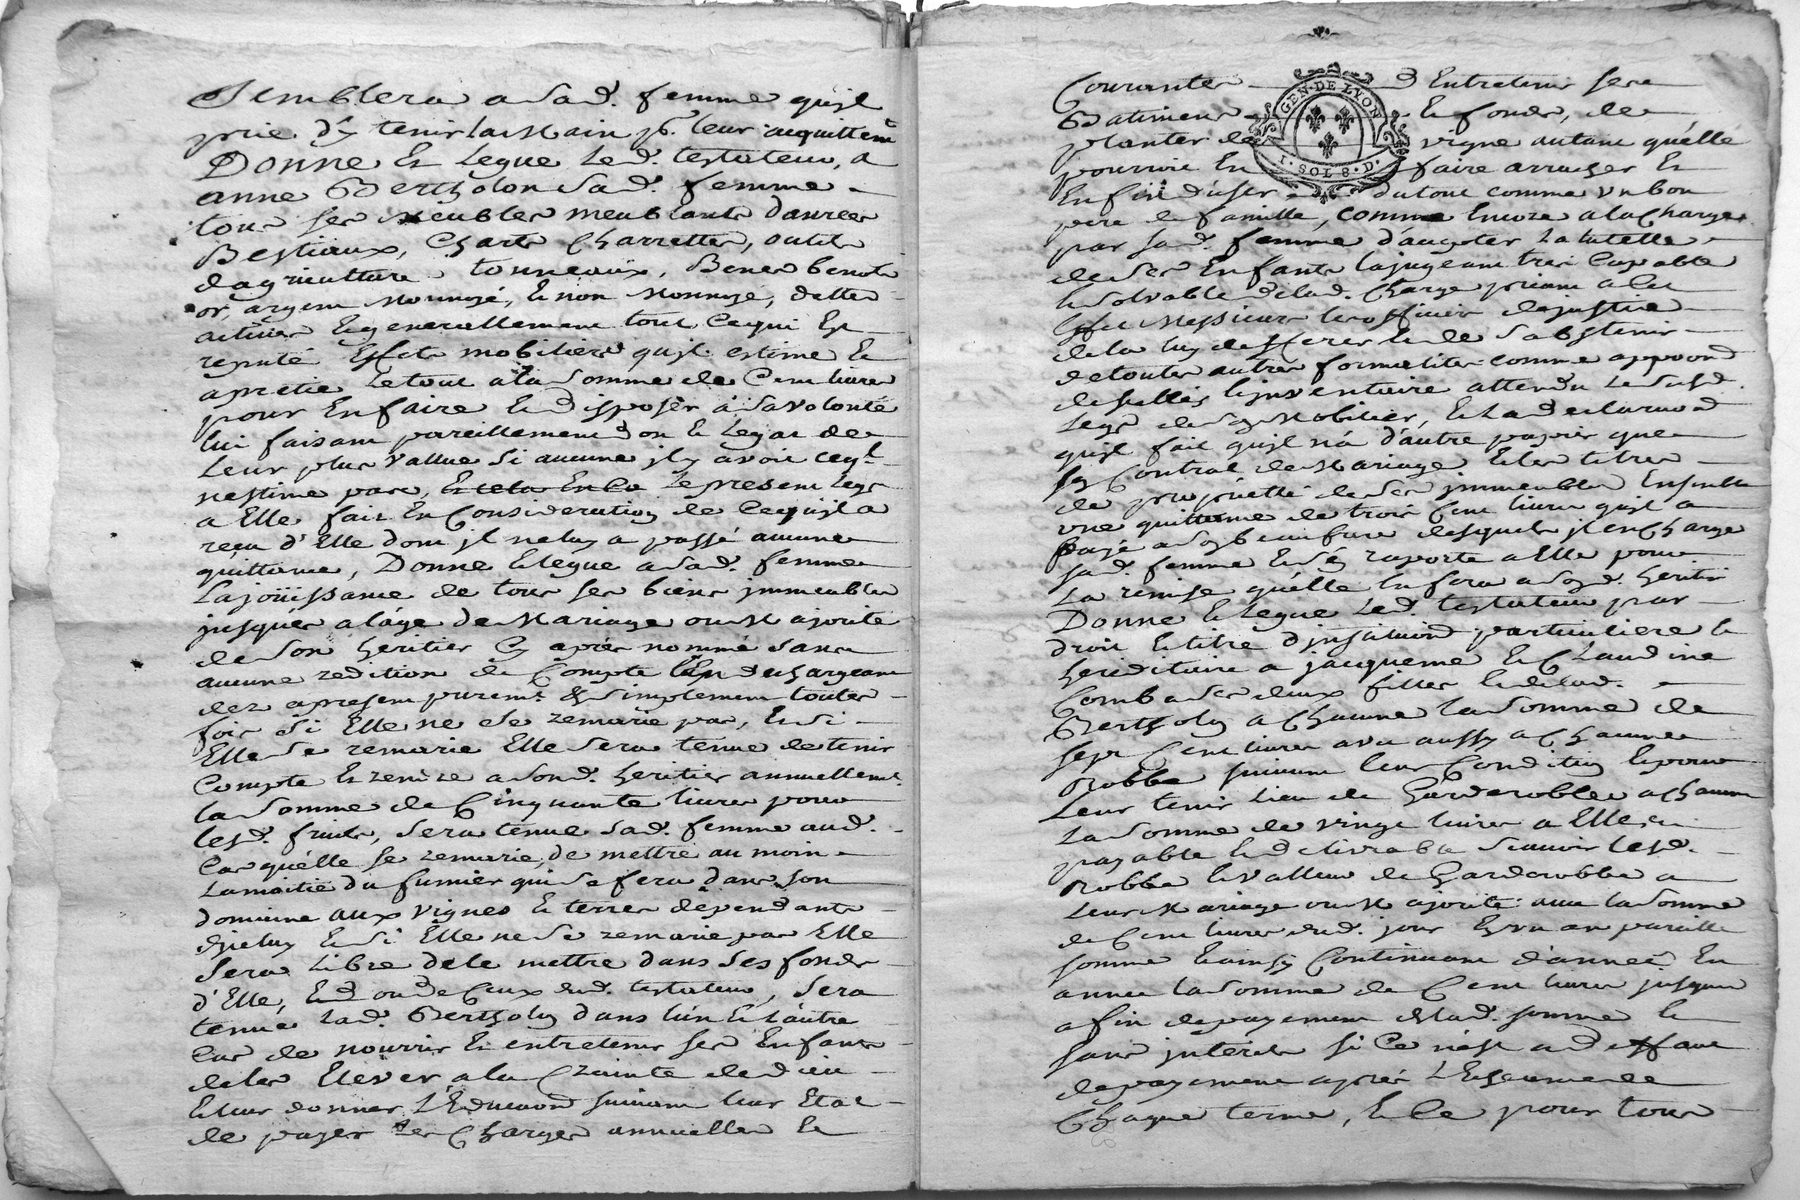 Semblera a sad. femme qu'jl
prie d'y tenir la Main pr. leur acquittemt
Donne Et Legue Led. testateur, a
anne Bertholon sad. femme
tous ses Meubles meublants danrées
Bestiaux, Charts Charrettes, outils
dagriculture tonneaux, Benes benots
or, argent Monnoyé, Et non Monnoyé, dettes
actives Et generallement tout Ce qui Est
reputé Effets mobiliers qu'jl estime Et
apretie Le tout a la somme de Cent livres
pour En faire Et disposer à sa volonté
lui faisant pareillement don Et Legat de
Leur plus vallue si aucune jl y avoit ce qjl
nestime pas, Le present Legs
a Elle fait En Consideration de Ce qu'jl a
reçu d'Elle dont jl ne luy a passé aucune
quittance, Donne Et legue a sad. femme
La joüissance de tous ses biens jmmeubles
jusques a l'age de Mariage ou Majorité
de son heritier Cy après nommé sans
aucune redition de Compte L'En dechargeant
dez apresent purement & simplement toutes
fois si Elle ne se remarie pas, Et si
Elle se remarie Elle sera tenue de tenir
Compte Et rendre a sond. heritier annuellemt
la somme de Cinquante livres pour
lesd. fruits, sera tenue sad. femme aud.
Cas qu'elle se remarie, de mettre au moins
La moitié du fumier qui se fera dans son
domaine aux vignes Et terres dépendants
d'jceluy Et si Elle ne se remarie pas Elle
sera Libre de le mettre dans ses fonds
d'Elle, Et ou de Ceux dud. testateur, sera
tenue Lad. Bertholon dans l'un Et l'autre
Cas de nourrir Et entretenir ses Enfants
de les Elever a la Crainte de dieu
Et leur donner L'Education suivant leur Etat
de payer Les Charges annuelles Et
Courantes d'Entretenir ses
Batiments Et fonds, de
planter de vigne autant qu'elle
pourra En faire arracher Et
Enfin d'user du tout comme un bon
pere de famille, comme Encore a la Charge
par sad. femme d'accepter La tutelle
de ses Enfants la jugeant tres Capable
Et solvable de lad. Charge priant a Cet
Effet Messieurs les officiers de justice
de la luy deferer Et de s'abstenir
de toutes autres formalités comme apposition
de scellés Et jnventaire attendu Le susd.
Legs de son Mobilier, Et La declaration
qu'jl fait qu'jl n'a d'autre papiers que
son Contrat de Mariage, Et les titres
de proprietté de ses jmmeubles Ensemble
une quittance de trois Cent livres qu'jl a
payé a son beaufrere desquels jl en Charge
sad. femme Et s'en raporte a Elle pour
La remise qu'elle En fera a sond. heritier
Donne Et Legue Led. testateur par
droit Et titre d'jnstitution particuliere Et
hereditaire a jacqueme Et Claudine
Combe ses deux filles Et de lad.
Bertholon a Chacune la somme de
sept Cent livres avec aussy a Chacune
Robbe suivant leur Condition Et pour
Leur tenir Lieu de Garderobbe a Chacune
La somme de vingt livres a Elles
payable Et delivrable scavoir Lesd.
Robbe Et valleur de Garderobbe a
Leur Mariage ou Majorité avec la somme
de Cent livres dud. jour En un an pareille
somme Et ainsy Continuant d'année En
année la somme de Cent livres jusques
a fin de payement de lad. somme Et
sans jnterets si Ce n'est a deffaut
de payement après L'Echeance de
Chaque terme, Et Ce pour tous
GEN. DE LYON
1. SOL 8. D.